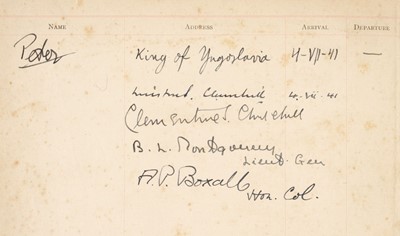 NAME ADDRESS ARRIVAL DEPARTURE
Peter King of Yugoslavia 4-VII-41 —
Winston S. Churchill 4-VII-41
Clementine S. Churchill
B. L. Montgomery
Lieut-Gen
A.P. Boxall
Hon. Col.